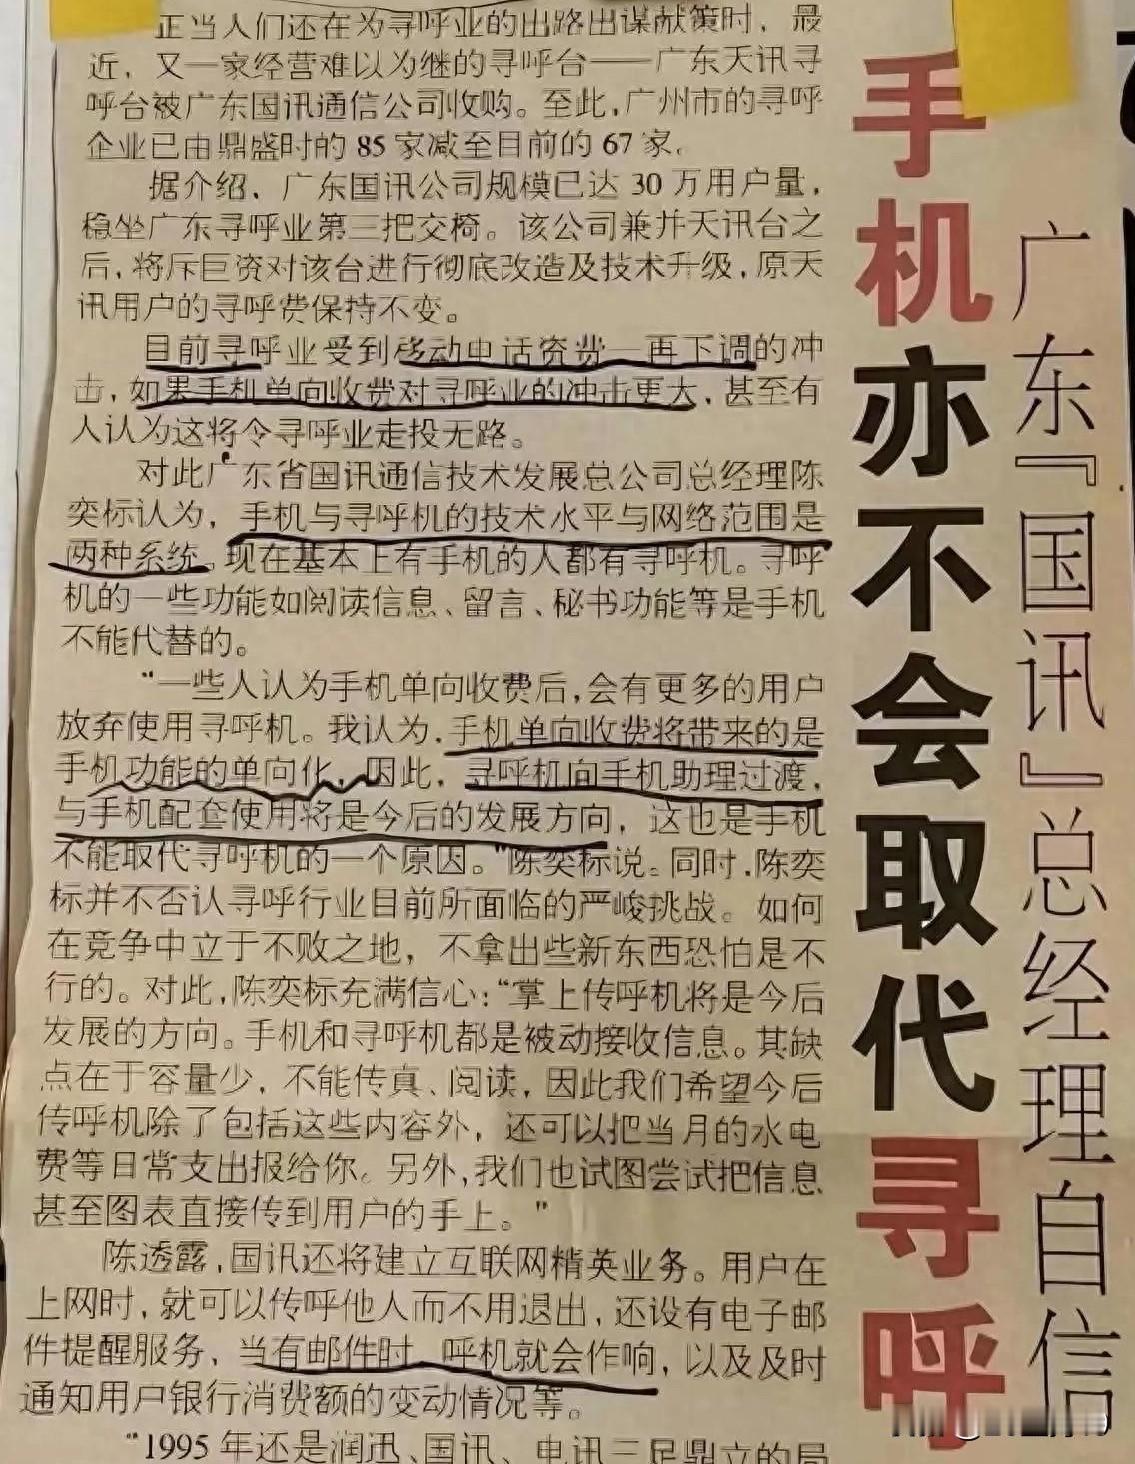 广东『国讯』总经理自信
手机亦不会取代寻呼
正当人们还在为寻呼业的出路出谋献策时，最
近，又一家经营难以为继的寻呼台——广东天讯寻
呼台被广东国讯通信公司收购。至此，广州市的寻呼
企业已由鼎盛时的 85 家减至目前的 67 家。
据介绍，广东国讯公司规模已达 30 万用户量，
稳坐广东寻呼业第三把交椅。该公司兼并天讯台之
后，将斥巨资对该台进行彻底改造及技术升级，原天
讯用户的寻呼费保持不变。
目前寻呼业受到移动电话资费一再下调的冲
击，如果手机单向收费对寻呼业的冲击更大，甚至有
人认为这将令寻呼业走投无路。
对此广东省国讯通信技术发展总公司总经理陈
奕标认为，手机与寻呼机的技术水平与网络范围是
两种系统，现在基本上有手机的人都有寻呼机。寻呼
机的一些功能如阅读信息、留言、秘书功能等是手机
不能代替的。
“一些人认为手机单向收费后，会有更多的用户
放弃使用寻呼机。我认为，手机单向收费将带来的是
手机功能的单向化，因此，寻呼机向手机助理过渡，
与手机配套使用将是今后的发展方向，这也是手机
不能取代寻呼机的一个原因。”陈奕标说。同时，陈奕
标并不否认寻呼行业目前所面临的严峻挑战。如何
在竞争中立于不败之地，不拿出些新东西恐怕是不
行的。对此，陈奕标充满信心：“掌上传呼机将是今后
发展的方向。手机和寻呼机都是被动接收信息。其缺
点在于容量少，不能传真、阅读，因此我们希望今后
传呼机除了包括这些内容外，还可以把当月的水电
费等日常支出报给你。另外，我们也试图尝试把信息
甚至图表直接传到用户的手上。”
陈透露，国讯还将建立互联网精英业务。用户在
上网时，就可以传呼他人而不用退出，还设有电子邮
件提醒服务，当有邮件时，呼机就会作响，以及及时
通知用户银行消费额的变动情况等。
“1995 年还是润迅、国讯、电讯三足鼎立的局